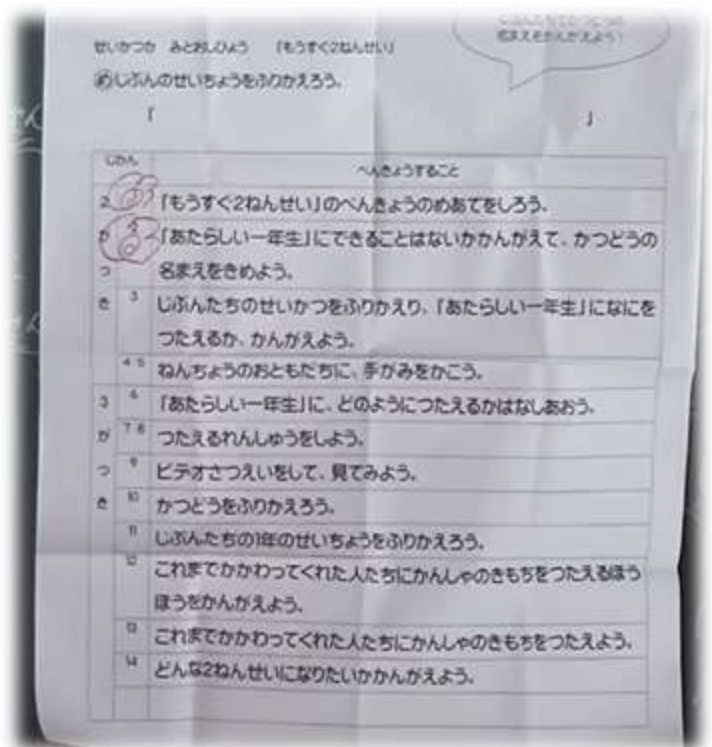 名まえをかんがえよう！
せいかつか　みとおしひょう　「もうすぐ2ねんせい」
めじぶんのせいちょうをふりかえろう。
「　　　　　　　　　　」
じかん　べんきょうすること
2がつ
「もうすぐ2ねんせい」のべんきょうのめあてをしろう。
「あたらしい一年生」にできることはないかかんがえて、かつどうの
名まえをきめよう。
3　じぶんたちのせいかつをふりかえり、「あたらしい一年生」になにを
つたえるか、かんがえよう。
4 5　ねんちょうのおともだちに、手がみをかこう。
3がつ
6　「あたらしい一年生」に、どのようにつたえるかはなしあおう。
7 8　つたえるれんしゅうをしよう。
9　ビデオさつえいをして、見てみよう。
10　かつどうをふりかえろう。
11　じぶんたちの1年のせいちょうをふりかえろう。
12　これまでかかわってくれた人たちにかんしゃのきもちをつたえるほう
ほうをかんがえよう。
13　これまでかかわってくれた人たちにかんしゃのきもちをつたえよう。
14　どんな2ねんせいになりたいかかんがえよう。